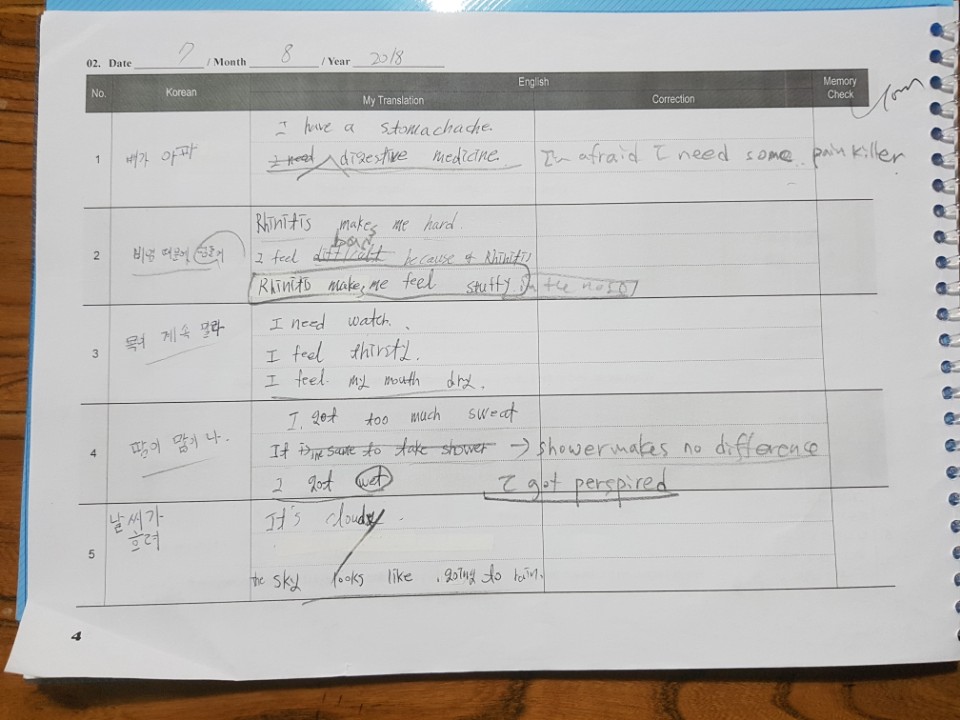 02. Date 7 / Month 8 / Year 2018
No. Korean English Memory Check
My Translation Correction
1 배가 아파 I have a stomachache.
I need digestive medicine. I'm afraid I need some pain killer
2 비염 때문에 Rhinitis makes me hard.
I feel difficult because of Rhinitis
Rhinitis makes me feel stuffy in the nose
3 목이 계속 말라 I need watch.
I feel thirsty.
I feel my mouth dry.
4 땀이 많이 나. I got too much sweat
If take shower → shower makes no difference
I got wet I got perspired
5 날씨가 흐려 It's cloudy.
the sky looks like going to rain.
4